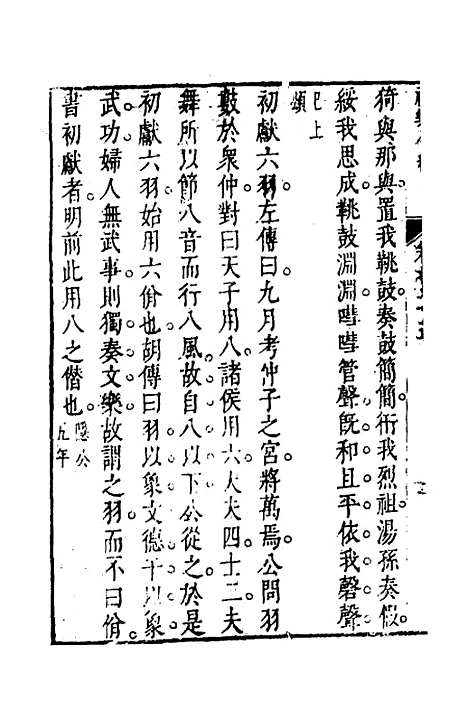 猗與那與置我鞉鼓奏鼓簡簡衎我烈祖湯孫奏假
綏我思成鞉鼓淵淵嘒嘒管聲旣和且平依我磬聲
已上
頌
初獻六羽左傳曰九月考仲子之宮將萬焉公問羽
數於衆仲對曰天子用八諸侯用六大夫四士二夫
舞所以節八音而行八風故自八以下公從之於是
初獻六羽始用六佾也胡傳曰羽以象文德干以象
武功婦人無武事則獨奏文樂故謂之羽而不曰佾
書初獻者明前此用八之僭也隱公
五年